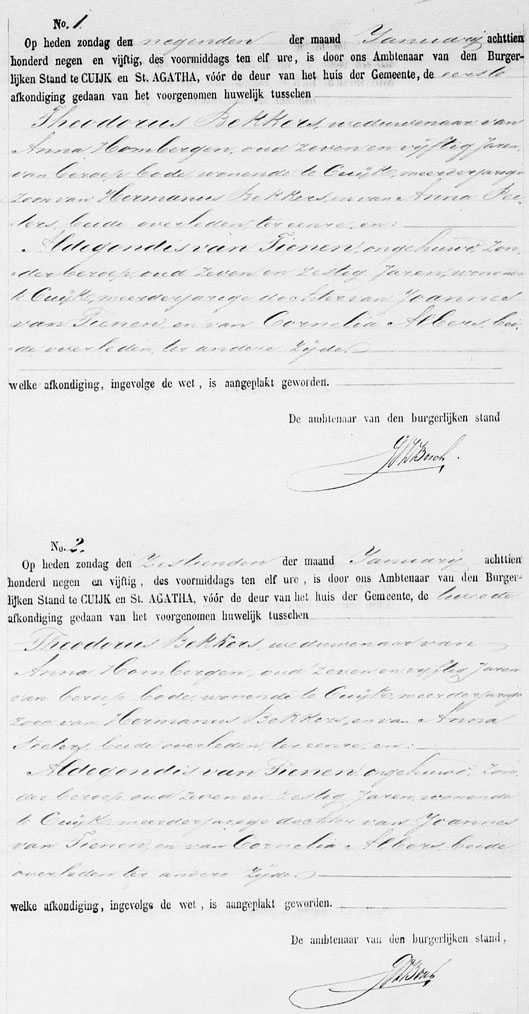 No. 1.
Op heden zondag den negenden der maand Januarij achttien
honderd negen en vijftig, des voormiddags ten elf ure, is door ons Ambtenaar van den Burger-
lijken Stand te CUIJK en St. AGATHA, vóór de deur van het huis der Gemeente, de eerste
afkondiging gedaan van het voorgenomen huwelijk tusschen
Theodorus Bekkers, weduwenaar van
Anna Hombergen, oud zeven en vijftig Jaren,
van beroep bode, wonende te Cuijk, meerderjarige
zoon van Hermanus Bekkers, en van Anna Pee-
ters, beide overleden, ter eenre, en:
Aldegondis van Tienen, ongehuwd, Zon-
der beroep, oud zeven en zestig Jaren, wonende
te Cuijk, meerderjarige dochter van Joannes
van Tienen, en van Cornelia Albers, bei-
de overleden, ter andere zijde.
welke afkondiging, ingevolge de wet, is aangeplakt geworden.
De ambtenaar van den burgerlijken stand
No. 2.
Op heden zondag den Zestienden der maand Januarij achttien
honderd negen en vijftig, des voormiddags ten elf ure, is door ons Ambtenaar van den Burger-
lijken Stand te CUIJK en St. AGATHA, vóór de deur van het huis der Gemeente, de tweede
afkondiging gedaan van het voorgenomen huwelijk tusschen
Theodorus Bekkers, weduwenaar van
Anna Hombergen, oud zeven en vijftig Jaren,
van beroep bode, wonende te Cuijk, meerderjarige
zoon van Hermanus Bekkers, en van Anna
Peeters, beide overleden, ter eenre, en:
Aldegondis van Tienen, ongehuwd, Zon-
der beroep, oud zeven en zestig Jaren, wonende
te Cuijk, meerderjarige dochter van Joannes
van Tienen, en van Cornelia Albers, beide
overleden ter andere zijde.
welke afkondiging, ingevolge de wet, is aangeplakt geworden.
De ambtenaar van den burgerlijken stand,